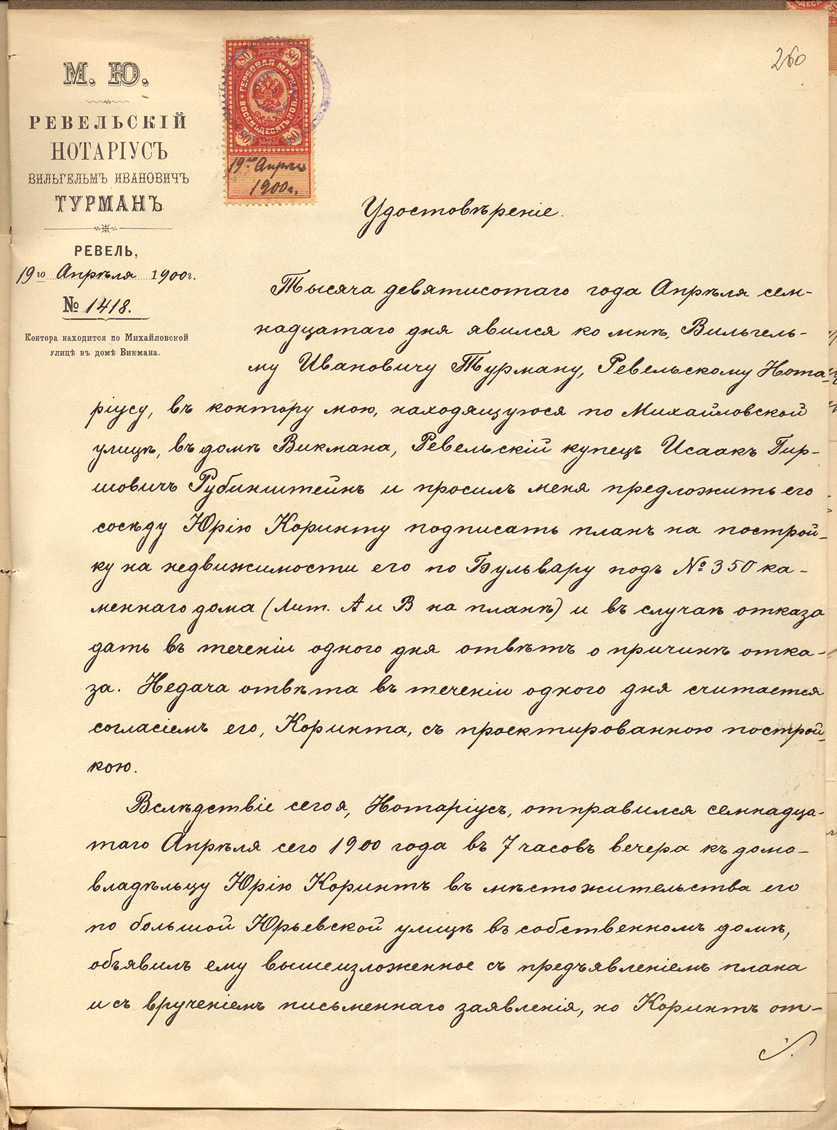 260
М. Ю.
РЕВЕЛЬСКІЙ
НОТАРІУСЪ
ВИЛЬГЕЛЬМЪ ИВАНОВИЧЪ
ТУРМАНЪ
РЕВЕЛЬ,
19го Апрѣля 1900г.
№ 1418.
Контора находится по Михайловской
улицѣ въ домѣ Викмана.
80 80
ГЕРБОВАЯ МАРКА
ВОСЕМЬДЕСЯТЪ КОП.
80 80
19го Апрѣля
1900г.
Удостовѣреніе.
Тысяча девятисотаго года Апрѣля сем-
надцатаго дня явился ко мнѣ, Вильгель-
му Ивановичу Турману, Ревельскому Нота-
ріусу, въ контору мою, находящуюся по Михайловской
улицѣ, въ домѣ Викмана, Ревельскій купецъ Исаакъ Гир-
шовичъ Рубинштейнъ и просилъ меня предложить его
сосѣду Юрію Коринту подписать планъ на построй-
ку на недвижимости его по Бульвару подъ № 350 ка-
меннаго дома (Лит. А и В на планѣ) и въ случаѣ отказа
дать въ теченіи одного дня отвѣтъ о причинѣ отка-
за. Недача отвѣта въ теченіи одного дня считается
согласіемъ его, Коринта, съ проектированною построй-
кою.
Вслѣдствіе сего я, Нотаріусъ, отправился семнадца-
таго Апрѣля сего 1900 года въ 7 часовъ вечера къ домо-
владѣльцу Юрію Коринтъ въ мѣстожительства его
по большой Юрьевской улицѣ въ собственномъ домѣ,
объявилъ ему вышеизложенное съ предъявленіемъ плана
и съ врученіемъ письменнаго заявленія, но Коринтъ от-